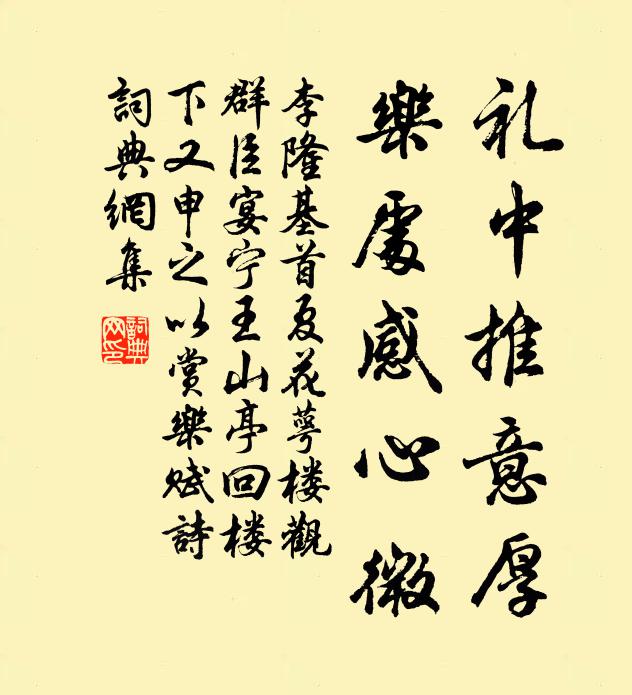 礼中推意厚
樂處感心微
李隆基首夏花萼楼觀
群臣宴宁王山亭回楼
下又申之以赏樂赋詩
詞典網集
詞典
网印